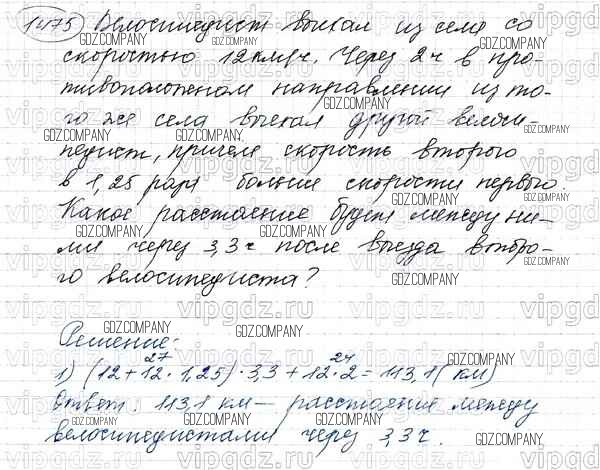 1475 Велосипедист выехал из села со
скоростью 12 км/ч. Через 2 ч в про-
тивоположном направлении из то-
го же села выехал другой велоси-
педист, причем скорость второго
в 1,25 раз больше скорости первого.
Какое расстояние будет между ни-
ми через 3,3 ч после выезда второ-
го велосипедиста?
Решение:
27 24
1) (12 + 12 · 1,25) · 3,3 + 12 · 2 = 113,1 (км)
Ответ: 113,1 км — расстояние между
велосипедистами через 3,3 ч.
GDZ.COMPANY
vipgdz.ru